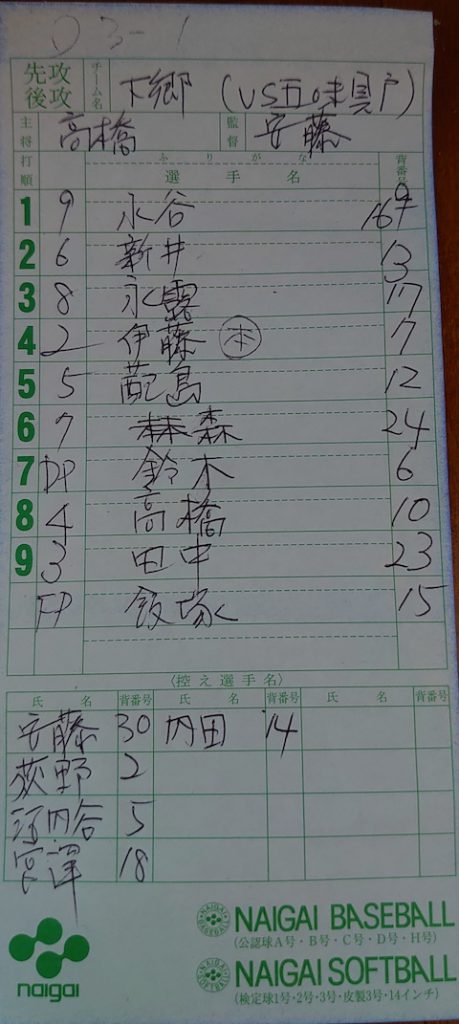 03-1
先攻 後攻 チーム名 下郷 (VS五味貝戸)
主将 高橋 監督 安藤
打順 ふりがな 選手名 背番号
1 9 永谷
2 6 新井 13
3 8 永露 17
4 2 伊藤 (本) 7
5 5 島 12
6 7 森 24
7 DP 鈴木 6
8 4 高橋 10
9 3 田中 23
FP 飯塚 15
(控え選手名)
氏名 背番号 氏名 背番号 氏名 背番号
安藤 30 内田 14
荻野 2
河内谷 5
宮澤 18
NAIGAI BASEBALL
(公認球A号・B号・C号・D号・H号)
naigai NAIGAI SOFTBALL
(検定球1号・2号・3号・皮製3号・14インチ)